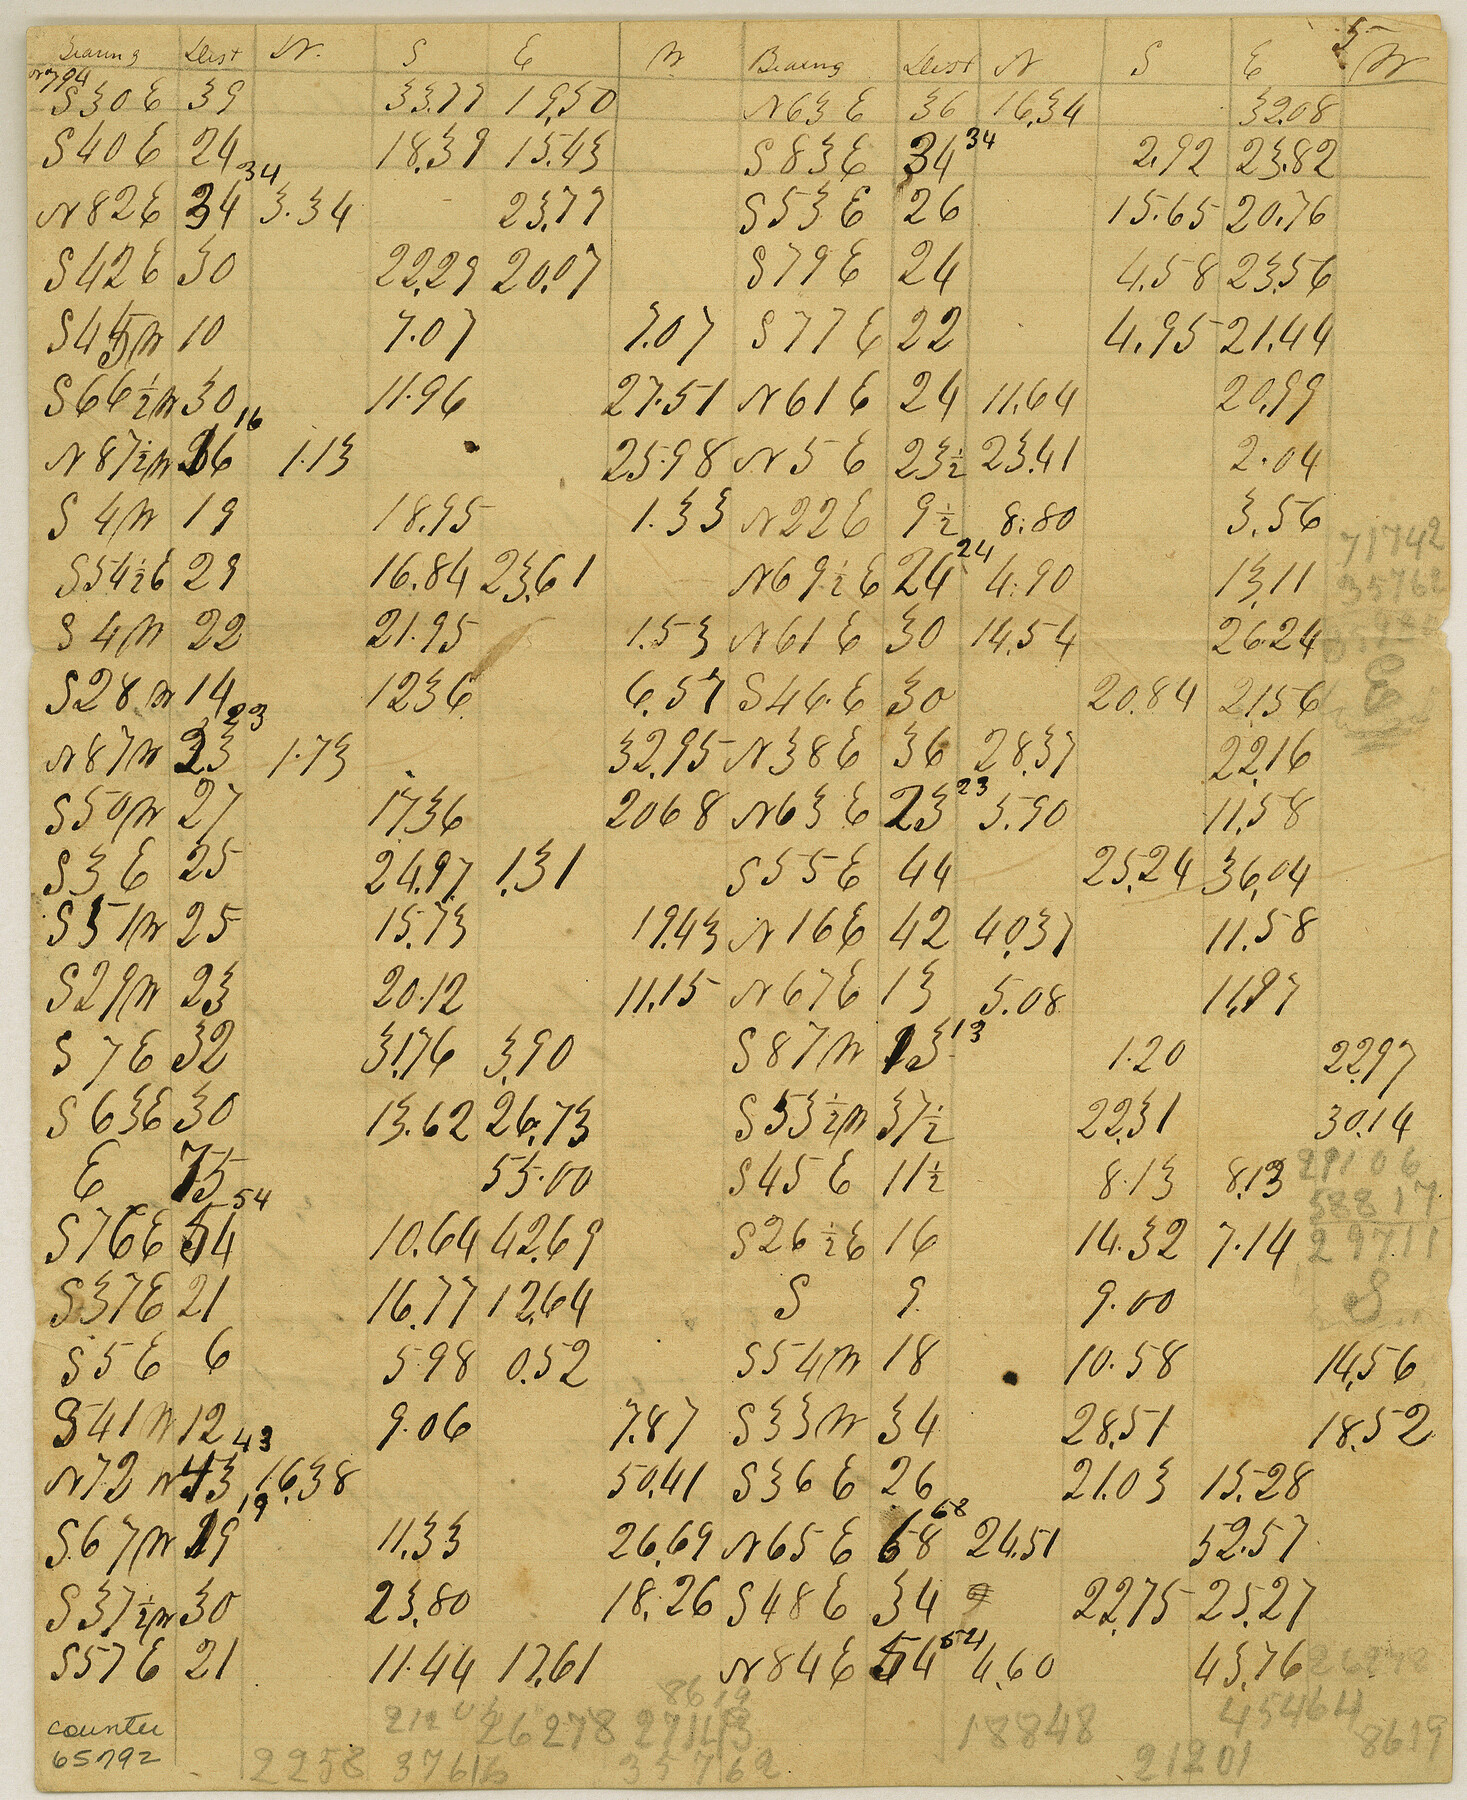 Bearing Dist N. S E W Bearing Dist N S E W
5
S30E 39 33.77 19.50 N63E 36 16.34 32.08
S40E 24 18.39 15.43 S83E 34 34 2.92 23.82
N82E 34 34 3.34 23.77 S53E 26 15.65 20.76
S42E 30 22.29 20.07 S79E 24 4.58 23.56
S45W 10 7.07 7.07 S77E 22 4.95 21.44
S66½W 30 11.96 27.51 N61E 24 11.64 20.99
N87½W 26 16 1.13 25.98 N5E 23½ 23.41 2.04
S4W 19 18.95 1.33 N22E 9½ 8.80 3.56
71742
S54½E 29 16.84 23.61 N69½E 24 24 4.90 13.11
35762
S4W 22 21.95 1.53 N61E 30 14.54 26.24
S28W 14 12.36 6.57 S46E 30 20.84 21.56
E
N87W 33 23 1.73 32.95 N38E 36 28.37 22.16
S50W 27 17.36 20.68 N63E 23 23 5.90 11.58
S3E 25 24.97 1.31 S55E 44 25.24 36.04
S51W 25 15.73 19.43 N16E 42 40.37 11.58
S29W 23 20.12 11.15 N67E 13 5.08 11.97
S7E 32 31.76 3.90 S87W 23 13 1.20 22.97
S63E 30 13.62 26.73 S53½W 37½ 22.31 30.14
E 75 55.00 S45E 11½ 8.13 8.13
29106
58817
S76E 54 54 10.64 42.69 S26½E 16 14.32 7.14
29711
S37E 21 16.77 12.64 S 9 9.00
S
S5E 6 5.98 0.52 S54W 18 10.58 14.56
S41W 12 9.06 7.87 S33W 34 28.51 18.52
N72W 43 43 16.38 50.41 S36E 26 21.03 15.28
S67W 29 19 11.33 26.69 N65E 68 68 24.51 52.57
S37½W 30 23.80 18.26 S48E 34 22.75 25.27
S57E 21 11.44 17.61 N84E 54 54 4.60 43.76
26278
8619
26278 27143 18848 45464
counter
65792
2258 37616 35762 21201 8619